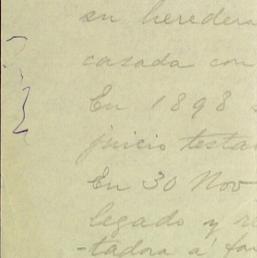 su heredera
casada con
En 1898 s
juicio testa
En 30 Nov
legado y re
-tadora á fav